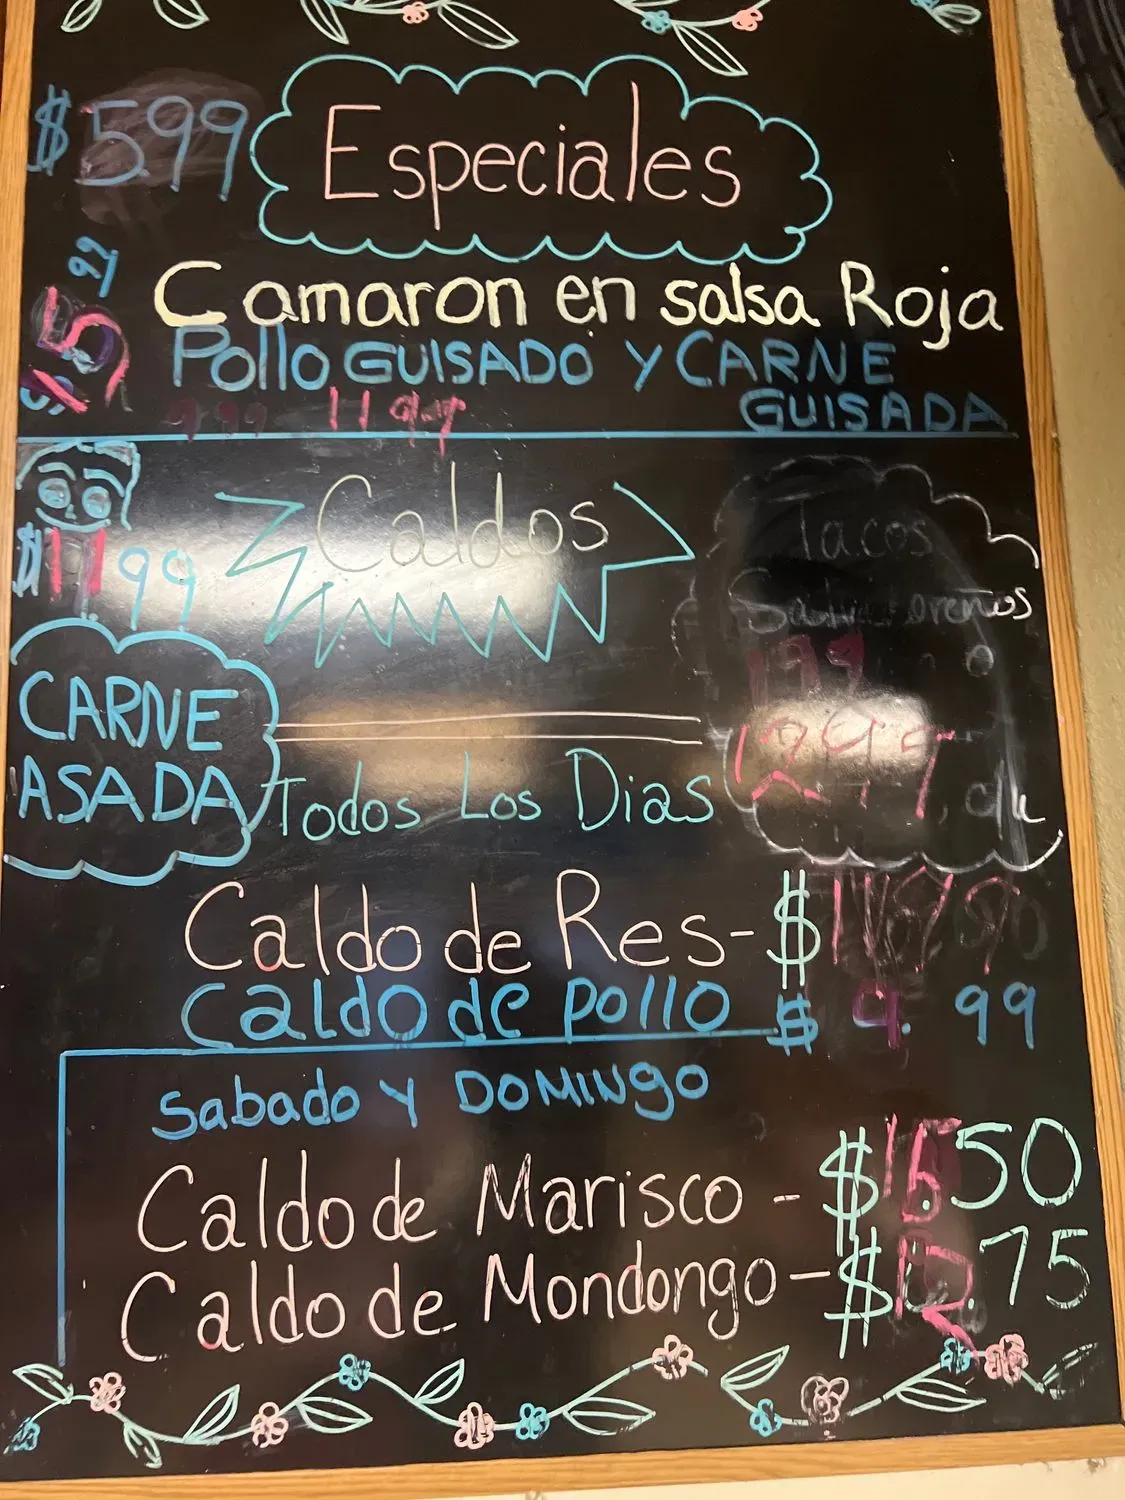 $5.99
Especiales
Camaron en salsa Roja
Pollo GUISADO Y CARNE
GUISADA
11 99
Caldos
$11 99
CARNE
ASADA
Tacos
Todos Los Dias
Caldo de Res-$
Caldo de pollo $ 9. 99
Sabado Y DOMINgO
Caldo de Marisco - $16.50
Caldo de Mondongo-$12.75